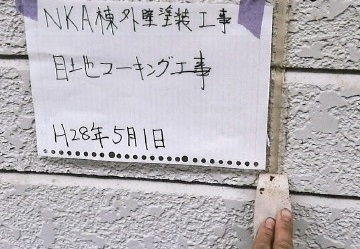 NKA棟外壁塗装工事
目地コーキング工事
H28年5月1日